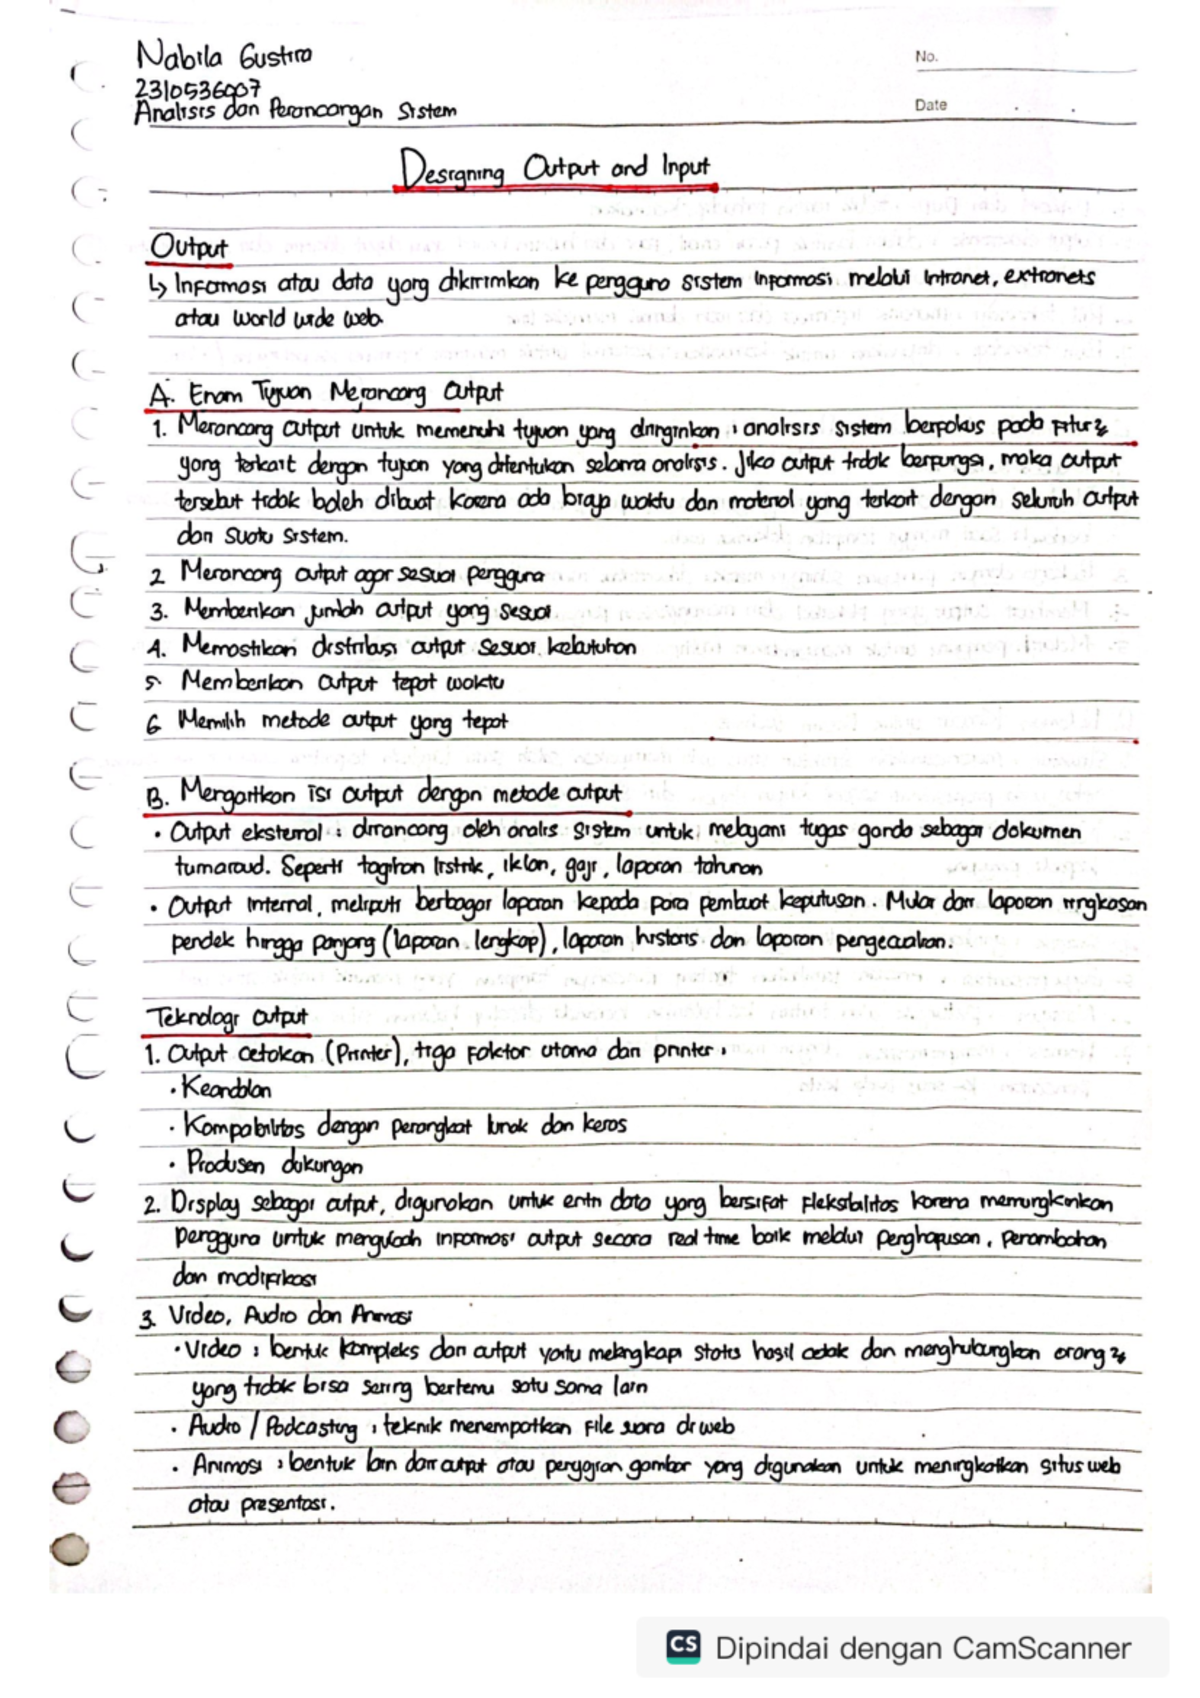 Nabila Gustira
2310536007
Analisis dan Perancangan Sistem
No.
Date
Designing Output and Input
Output
↳ Informasi atau data yang dikirimkan ke pengguna sistem informasi melalui intranet, extranets
atau world wide web.
A. Enam Tujuan Merancang Output
1. Merancang output untuk memenuhi tujuan yang diinginkan : analisis sistem berfokus pada fitur2
yang terkait dengan tujuan yang ditentukan selama analisis. Jika output tidak berfungsi, maka output
tersebut tidak boleh dibuat karena ada biaya waktu dan material yang terkait dengan seluruh output
dan suatu sistem.
2 Merancang output agar sesuai pengguna
3. Memberikan jumlah output yang sesuai
4. Memastikan distribusi output sesuai kebutuhan
5. Memberikan output tepat waktu
6 Memilih metode output yang tepat
B. Mengaitkan isi output dengan metode output
• Output eksternal : dirancang oleh analis sistem untuk melayani tugas ganda sebagai dokumen
turnaroud. Seperti tagihan listrik, iklan, gaji, laporan tahunan
• Output internal, meliputi berbagai laporan kepada para pembuat keputusan. Mulai dari laporan ringkasan
pendek hingga panjang (laporan lengkap), laporan historis dan laporan pengecualian.
Teknologi Output
1. Output cetakan (Printer), tiga faktor utama dari printer :
• Keandalan
• Kompabilitas dengan perangkat lunak dan keras
• Produsen dukungan
2. Display sebagai output, digunakan untuk entri data yang bersifat fleksibalitas karena memungkinkan
pengguna untuk mengubah informasi output secara real time baik melalui penghapusan, penambahan
dan modifikasi
3. Video, Audio dan Animasi
• Video : bentuk kompleks dari output yaitu melengkapi statis hasil cetak dan menghubungkan orang2
yang tidak bisa sering bertemu satu sama lain
• Audio / Podcasting : teknik menempatkan file suara di web
• Animasi : bentuk lain dari output atau penyajian gambar yang digunakan untuk meningkatkan situs web
atau presentasi.
CS Dipindai dengan CamScanner